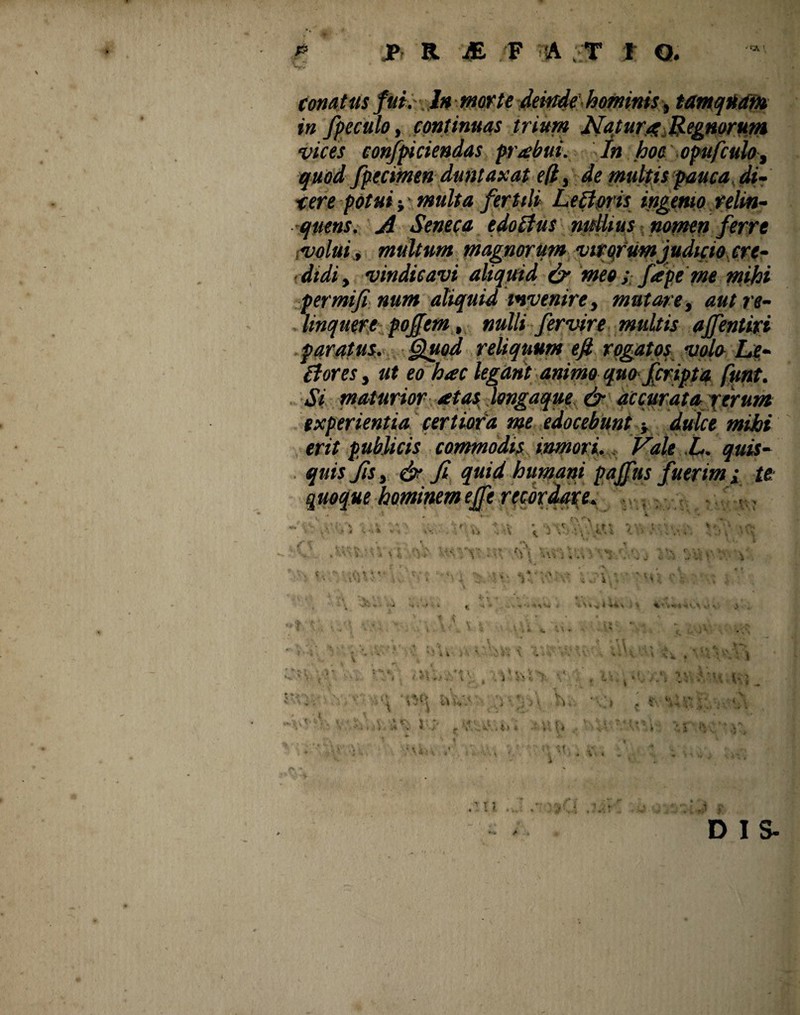 PRÆFATIO.
conatus fui. In morte deinde hominis, tamquam
in ſpeculo, continuas trium Naturæ Regnorum
vices conſpiciendas præbui. In hoc opuſculo,
quod ſpecimen duntaxat eſt, de multis pauca di-
cere potui; multa fertili Lectoris ingenio relin-
quens. A Seneca edoctus nullius nomen ferre
volui, multum magnorum virorum judicio cre-
didi, vindicavi aliquid & meo; ſæpe me mihi
permiſi num aliquid invenire, mutare, aut re-
linquere poſſem, nulli ſervire multis aſſentiri
paratus. Quod reliquum eſt rogatos volo Le-
ctores, ut eo hæc legant animo quo ſcripta ſunt.
Si maturior ætas longaque & accurata rerum
experientia certiora me edocebunt; dulce mihi
erit publicis commodis inmori. Vale L. quis-
quis ſis, & ſi quid humani paſſus fuerim; te
quoque hominem eſſe recordare.
DIS-